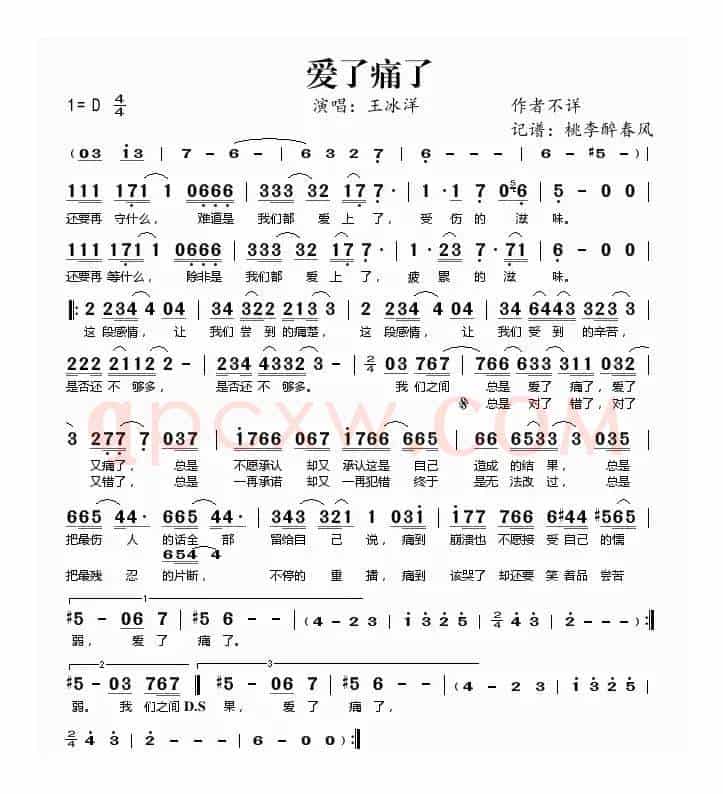 爱了痛了
1= D 4/4 演唱：王冰洋 作者不详
记谱：桃李醉春风
(03 i3 | 7 - 6 - | 6 3 2 7 | 6 - - - | 6 - #5 - )|
111 171 1 0666 | 333 32 17 7· | 1· 1 7 056 | 5 - 0 0
还要再 守什么， 难道是 我们都 爱 上 了， 受 伤 的 滋 味。
111 171 1 0666 | 333 32 17 7· | 1· 23 7· 71 | 6 - 0 0
还要再 等什么， 除非是 我们都 爱 上 了， 疲 累 的 滋 味。
|: 2 234 4 04 | 34 322 213 3 | 2 234 4 04 | 34 6443 323 3 |
这 段感情， 让 我们 尝 到 的痛楚， 这 段感情， 让 我们 受 到 的 辛苦，
222 2112 2 - | 234 4332 3 - | 2/4 03 767 | 766 633 311 032 |
是否还 不 够多， 是否还 不 够多。 我 们之间 总是 爱了 痛了， 爱了
总是 对了 错了， 对了
qpcxw.com
3 277 7 037 | i766 067 i766 665 | 66 6533 3 035 |
又痛了， 总是 不愿承认 却又 承认这是 自己 造成 的结 果， 总是
又错了， 总是 一再承诺 却又 一再犯错 终于 是无 法改 过， 总是
665 44· 665 44· | 343 321 1 03i | i77 766 6#44 #565 |
把最伤 人 的话全 部 留给自 己 说， 痛到 崩溃也 不愿接 受自己 的懦
654 4
把最残 忍 的片断， 不停的 重 播， 痛到 该哭了 却还要 笑着品 尝苦
1
#5 - 06 7 | #5 6 - - | (4 - 2 3 | i 3 2 5 | 2/4 4 3 | 2 - - - ):|
弱， 爱 了 痛 了。
2 3
#5 - 03 767 ‖ #5 - 06 7 | #5 6 - - | (4 - 2 3 | i 3 2 5 |
弱。 我 们之间 D.S 果， 爱 了 痛 了，
2/4 4 3 | 2 - - - | 6 - 0 0 ):|